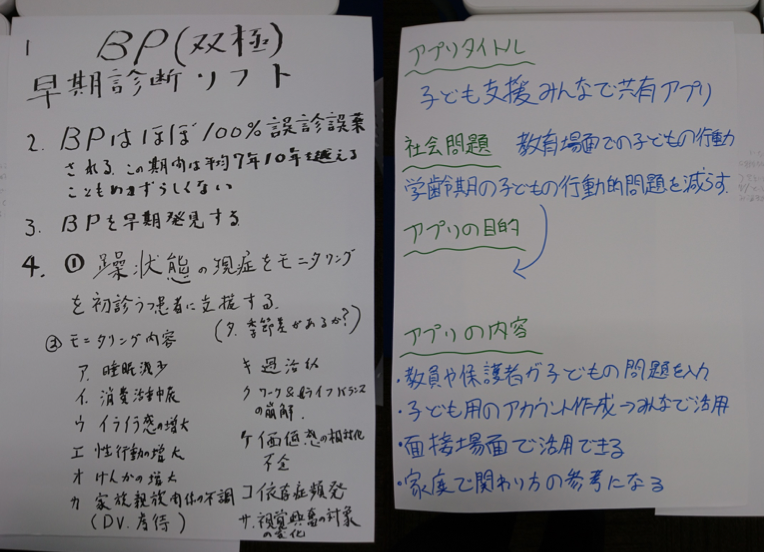 1 BP(双極)
早期診断ソフト
2. BPはほぼ100%誤診誤薬
される。この期間は平均7年10年を越える
こともめずらしくない
3. BPを早期発見する
4. ① 躁状態の現症をモニタリング
を初診うつ患者に支援する。
② モニタリング内容
(タ. 季節差があるか?)
ア. 睡眠減少
イ. 消費活動
ウ イライラ感の増大
エ 性行動の増大
オ けんかの増大
カ 家族親族関係の不調
(DV. 虐待)
キ 過活動
ク ワーク&ライフバランス
の崩解.
ケ 価値感の相対化
不全
コ 依存症頻発
サ. 視覚興奮の対象
の変化
アプリタイトル
子ども支援みんなで共有アプリ
社会問題 教育場面での子どもの行動
学齢期の子どもの行動的問題を減らす.
アプリの目的
アプリの内容
・教員や保護者が子どもの問題を入力
・子ども用のアカウント作成→みんなで活用
・面接場面で活用できる
・家庭で関わり方の参考になる